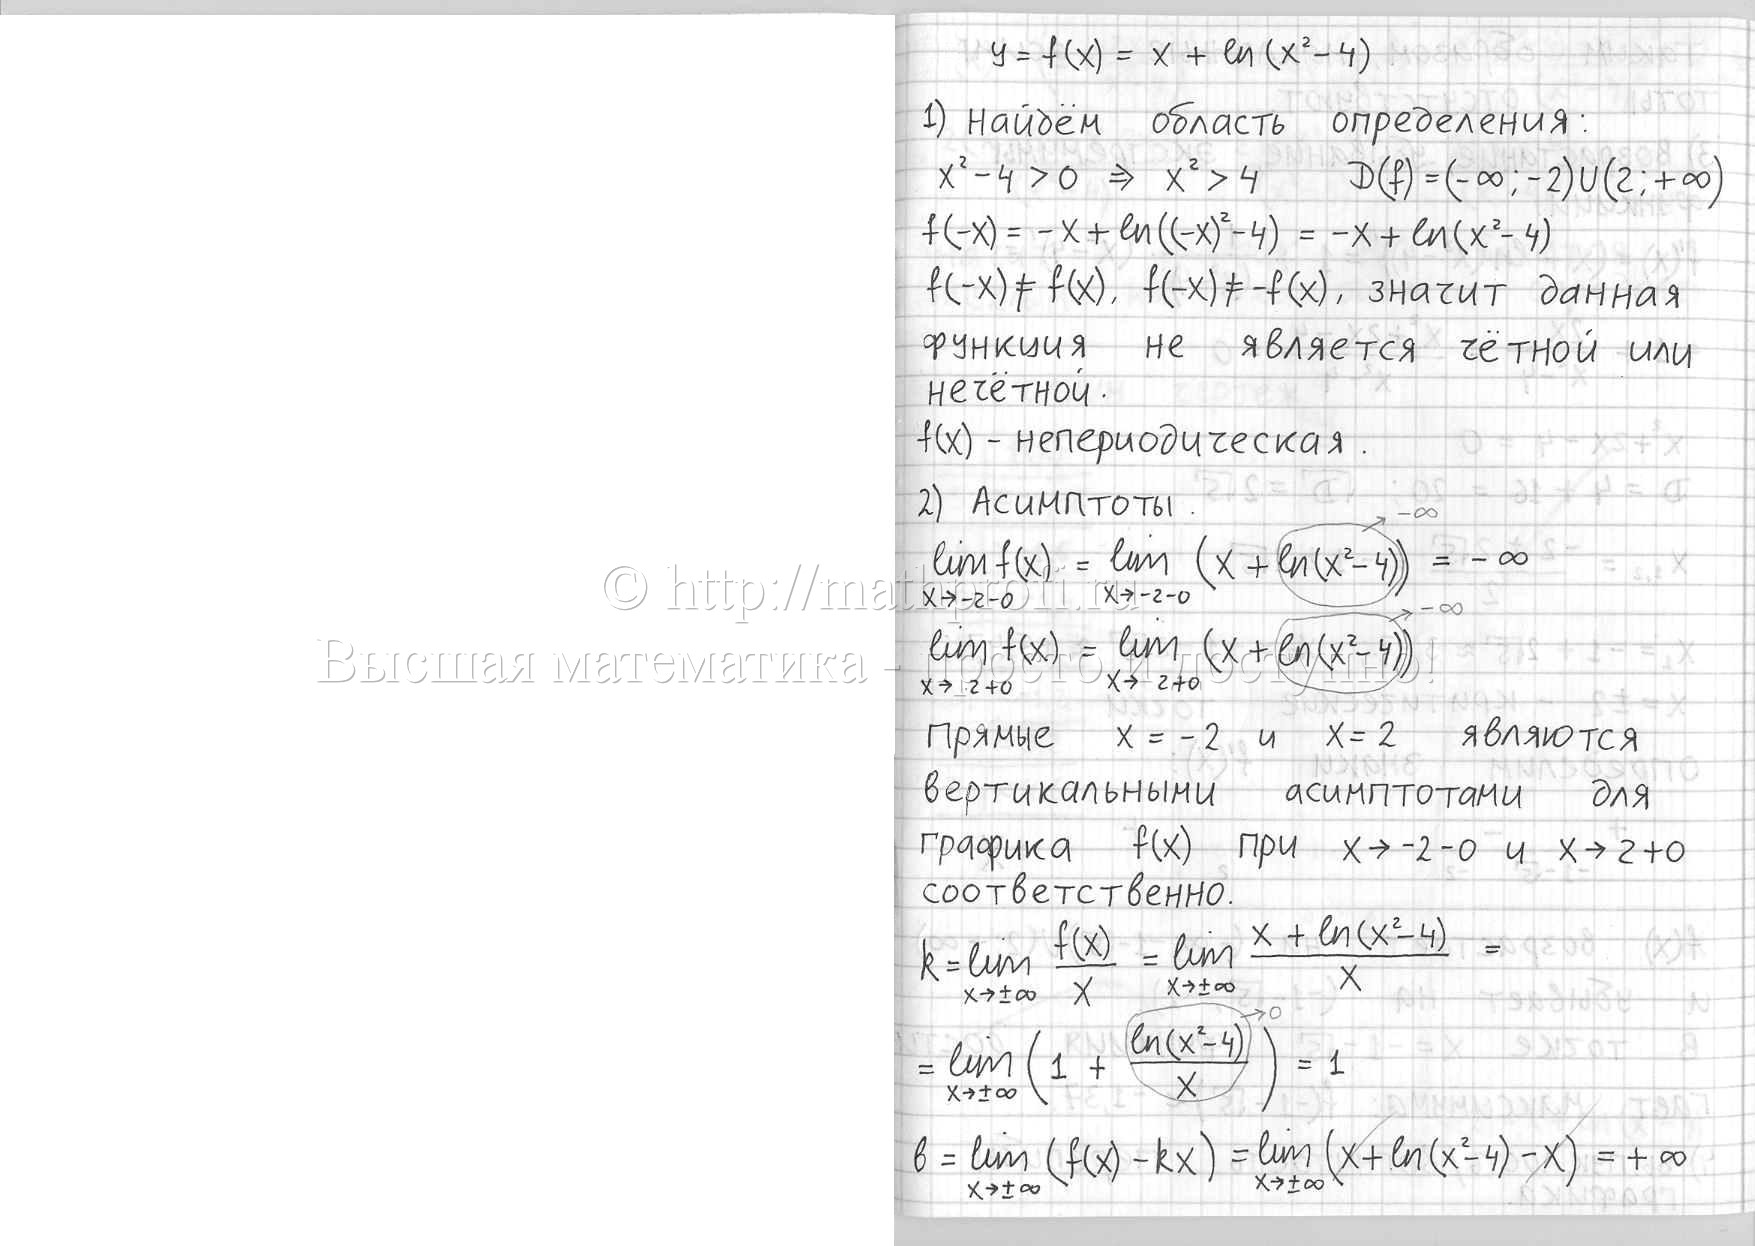 y = f(x) = x + ln(x² - 4)
1) Найдём область определения:
x² - 4 > 0 ⇒ x² > 4 D(f) = (-∞; -2) U (2; +∞)
f(-x) = -x + ln((-x)² - 4) = -x + ln(x² - 4)
f(-x) ≠ f(x), f(-x) ≠ -f(x), значит данная
функция не является чётной или
нечётной.
f(x) - непериодическая.
2) Асимптоты.
lim f(x) = lim (x + ln(x² - 4)) = -∞
x→-2-0 x→-2-0 → -∞
© http://mathprofi.ru
lim f(x) = lim (x + ln(x² - 4))
x→2+0 x→2+0 → -∞
Высшая математика – просто и доступно!
Прямые x = -2 и x = 2 являются
вертикальными асимптотами для
графика f(x) при x→-2-0 и x→2+0
соответственно.
k = lim f(x)/x = lim (x + ln(x² - 4))/x =
x→±∞ x→±∞
= lim (1 + ln(x² - 4)/x) = 1
x→±∞ → 0
b = lim (f(x) - kx) = lim (x + ln(x² - 4) - x) = +∞
x→±∞ x→±∞